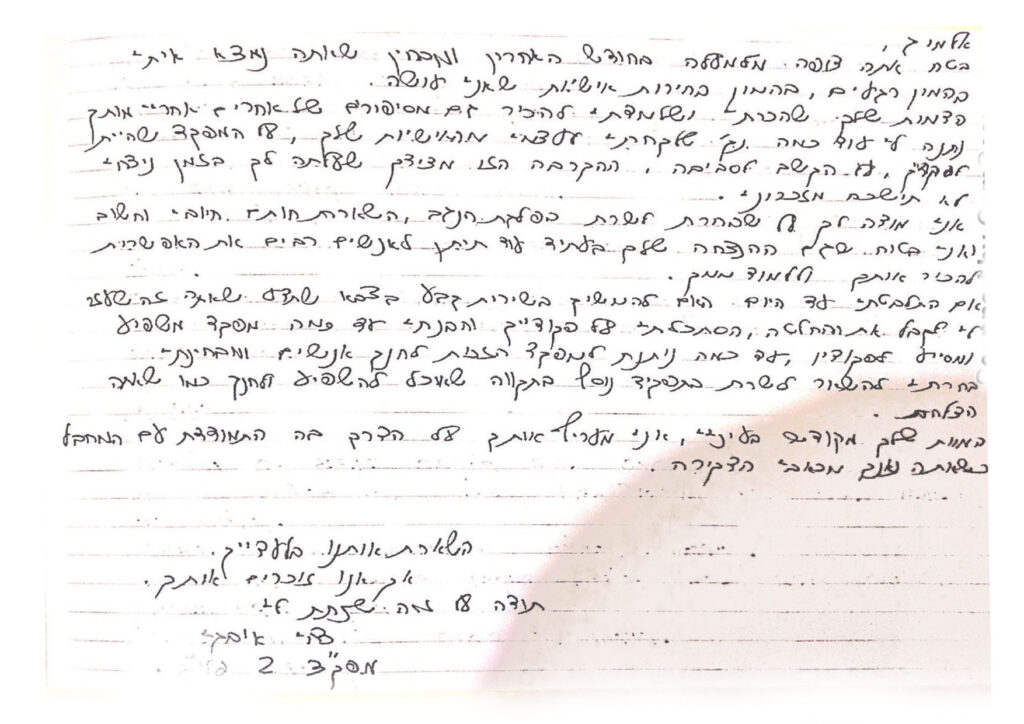 אלמוג,
בטח אתה צופה מלמעלה בחודש האחרון ומבחין שאתה נמצא איתי
בהמון רגעים, בהמון בחירות אישיות שאני עושה.
הדמות שלך שהכרתי ושלמדתי להכיר גם מסיפורים של אחרים אחרי מותך
נתנה לי עוד כמה שלקחתי לעצמי מהאישיות שלך, על המפקד שהיית
לפקודיך, על הקשב לסביבה, ההקרבה הזו מצידך שעלתה לך בזמן
לא תישכח מזכרוני.
אני מודה לך על שבחרת לשרת בפלגת הנגב, השארת חותם חיובי וחשוב
ואני בטוח שגם ההנצחה שלך בעתיד עוד תיתן לאנשים רבים את האפשרות
להכיר אותך וללמוד ממך.
אם התלבטתי עד היום האם להמשיך בשירות קבע בצבא שתדע שאתה זה שעזר
לי לקבל את ההחלטה, הסתכלתי על פקודייך והבנתי עד כמה מפקד משפיע
ומסייע לפקודיו, עד כמה ניתנת למפקד הזכות לחנך אנשים ומבחינתי
בחרתי להשאר לשרת בתפקיד נוסף בתקווה שאוכל להשפיע ולחנך כמו שאתה
הצלחת.
המוות שלך מקודש בעיניי, אני מעריץ אותך על הדרך בה התמודדת עם המחבל
כשאתה נאנק מכאבי הדקירה.
השארת אותנו בלעדייך.
אך אנו זוכרים אותך.
תודה על מה שנתת לי
מפק"צ 2